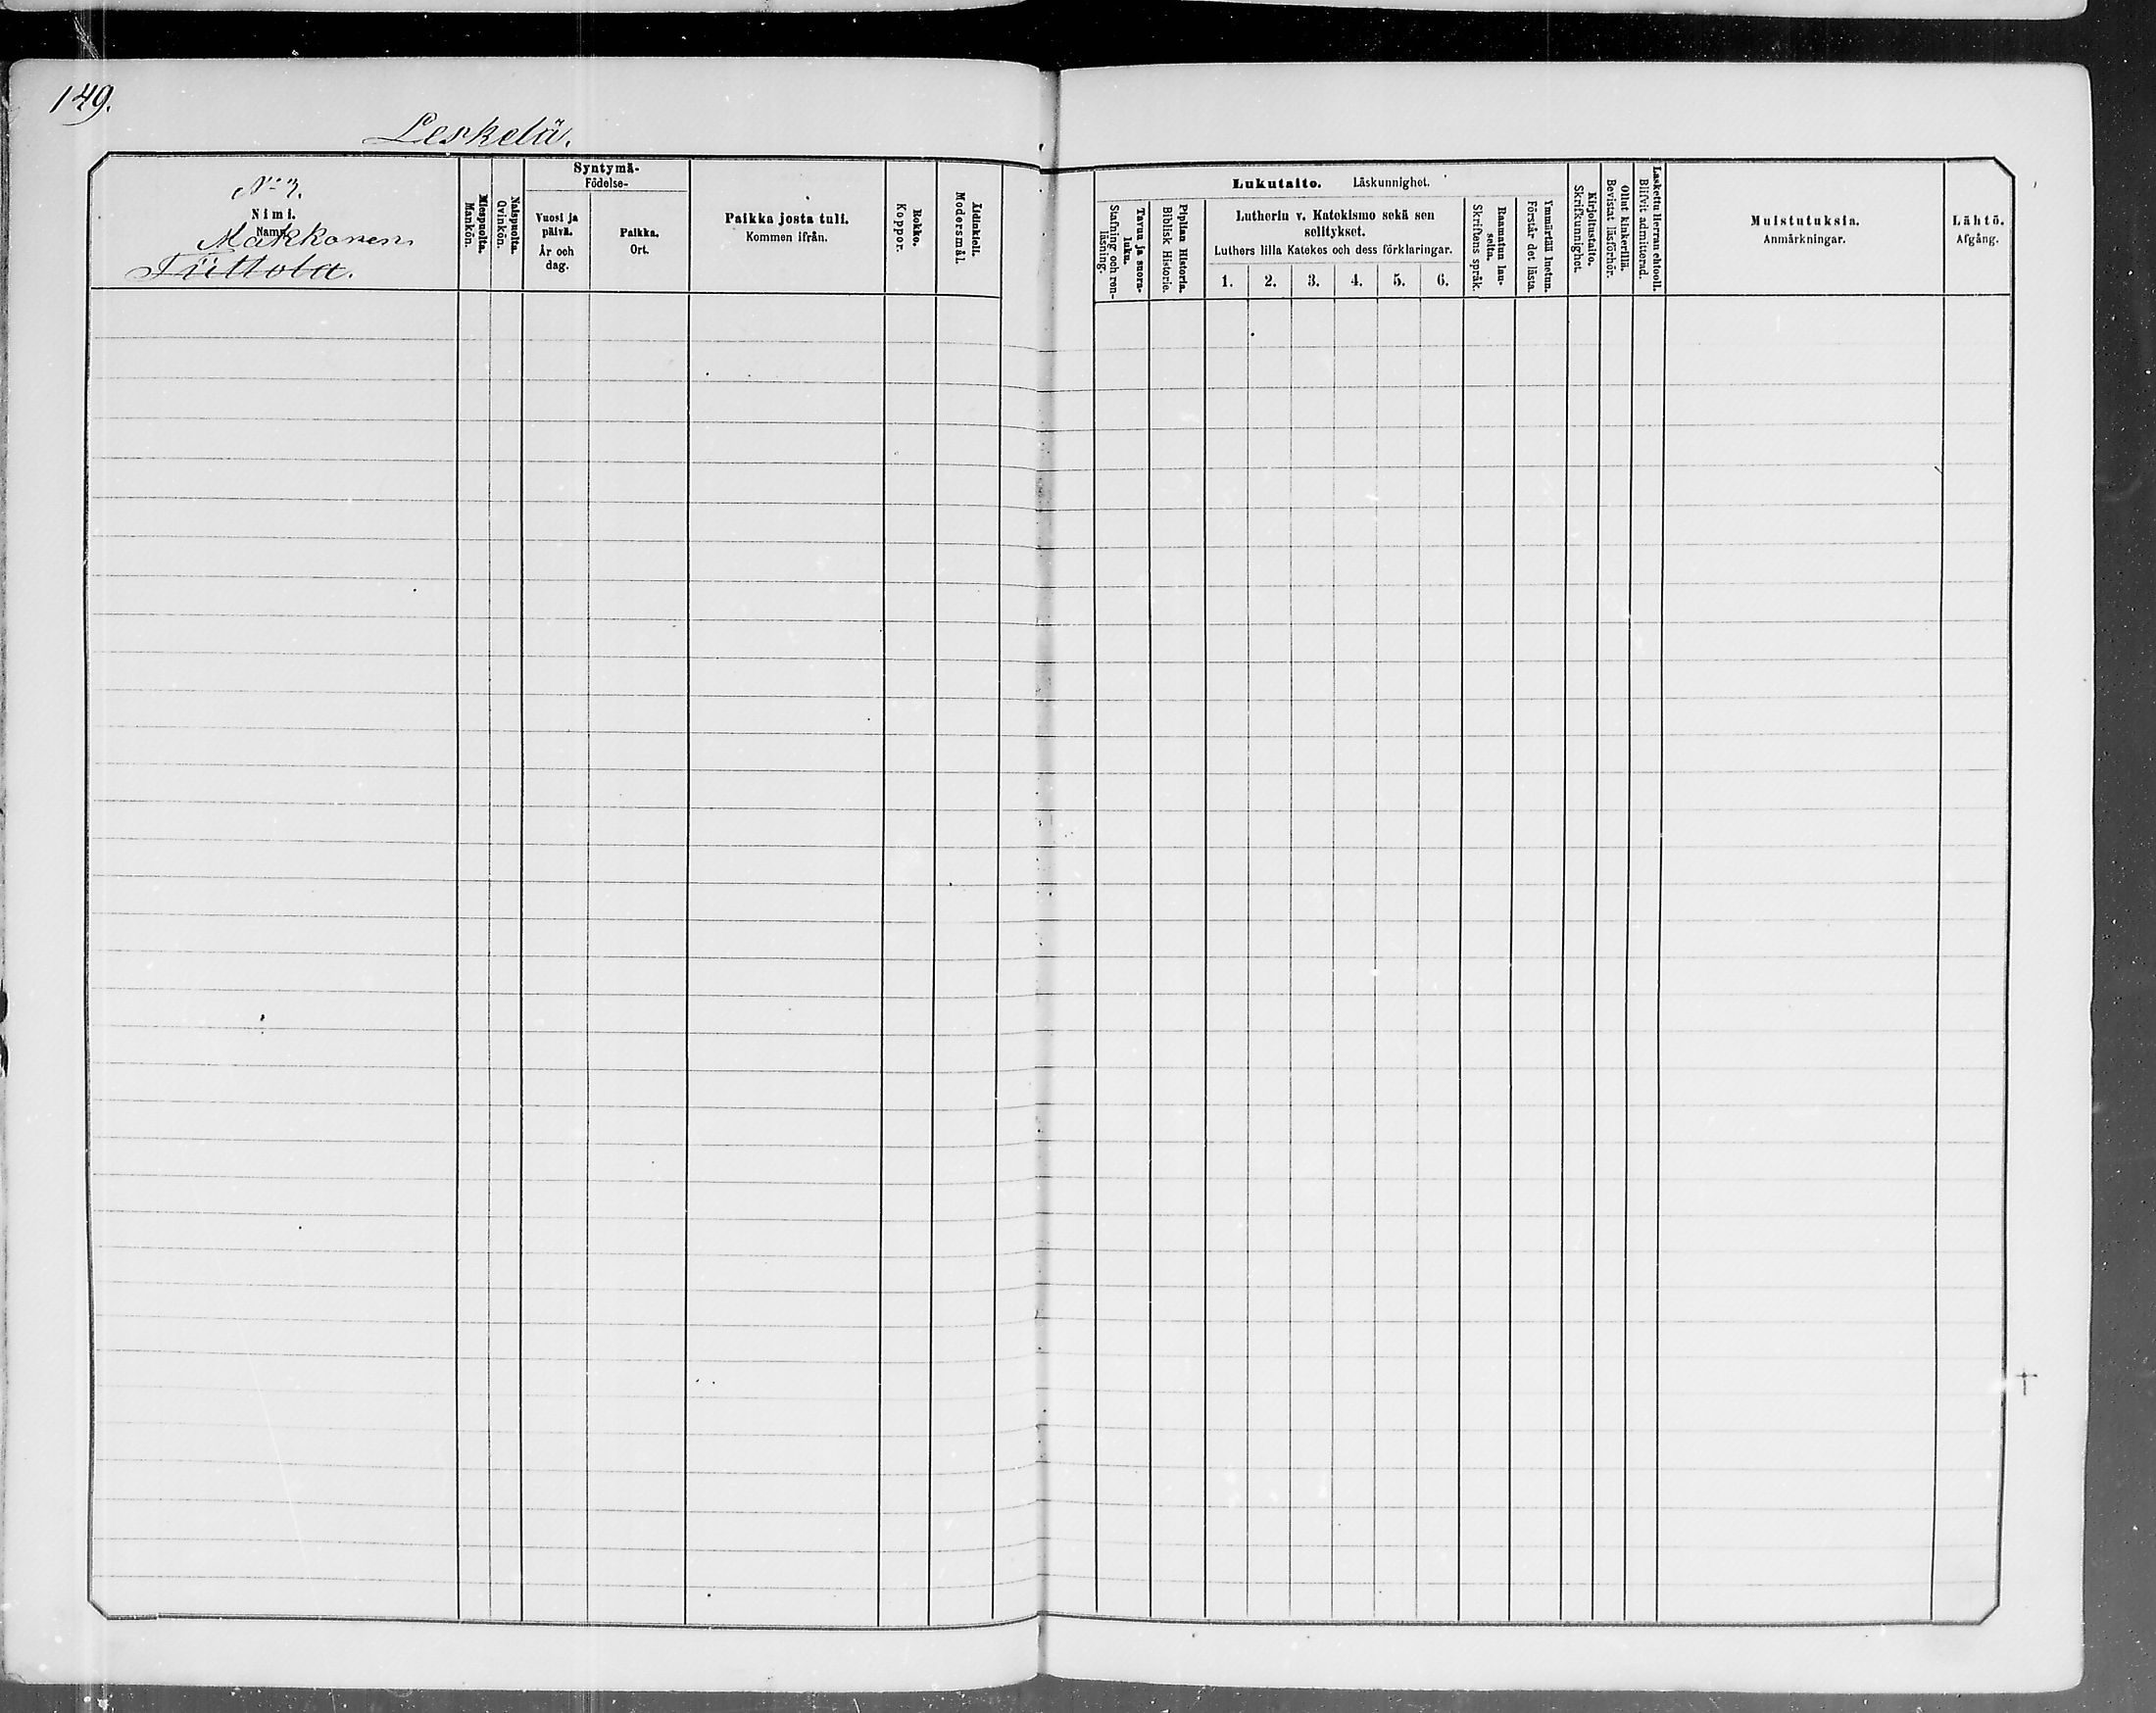 149.
Leskelä.
No 3.
Nimi.
Namn.
Makkonen
Tiittola.
Miespuolta.
Mankön.
Naispuolta.
Qvinkön.
Syntymä-
Födelse-
Vuosi ja
päivä.
År och
dag.
Paikka.
Ort.
Paikka josta tuli.
Kommen ifrån.
Rokko.
Koppor.
Äidinkieli.
Modersmål.
Lukutaito. Läskunnighet.
Tavuu ja suora-
luku.
Stafning och ren-
läsning.
Piplian Historia.
Biblisk Historie.
Lutherin v. Katekismo sekä sen
selitykset.
Luthers lilla Katekes och dess förklaringar.
1. 2. 3. 4. 5. 6.
Raamatun lau-
seita.
Skriftens språk.
Ymmärtää luetun.
Förstår det lästa.
Kirjoitustaito.
Skrifkunnighet.
Ollut kinkerillä.
Bevistat läsförhör.
Laskettu Herran ehtooll.
Blifvit admitterad.
Muistutuksia.
Anmärkningar.
Lähtö.
Afgång.